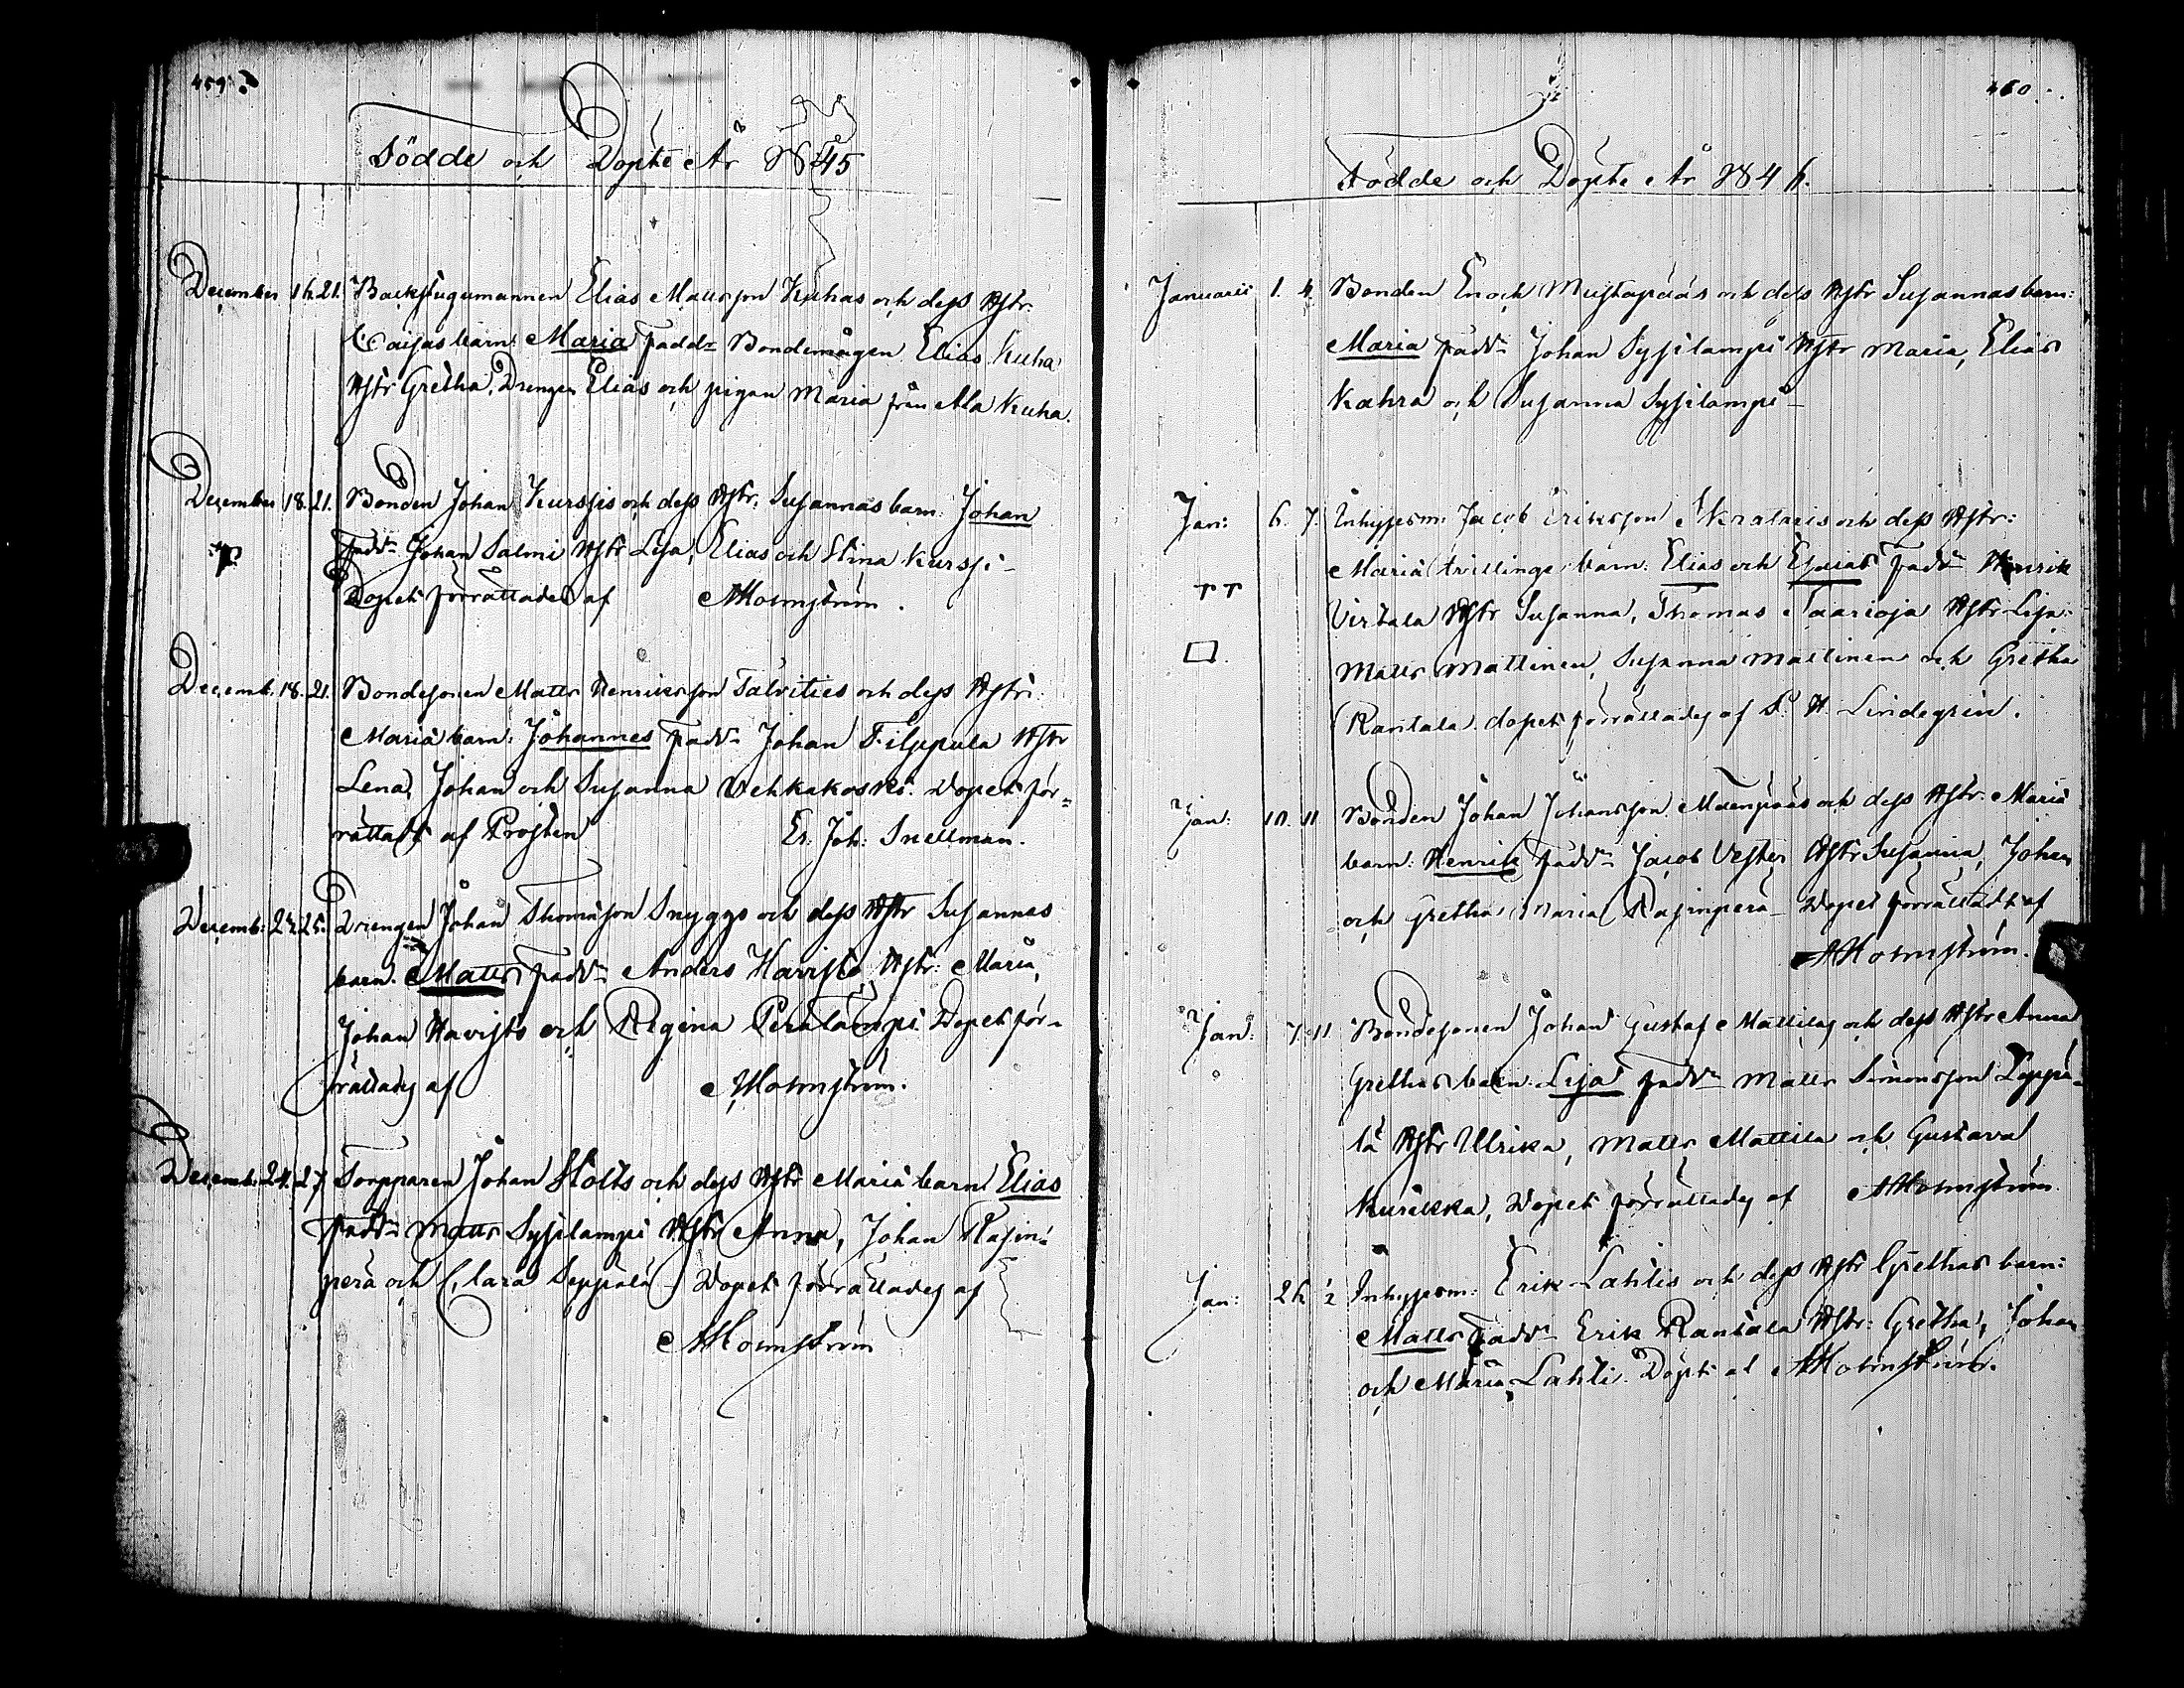 459.
Födde och Döpte År 1845
December 16. 21. Backstugumannen Elias Mattsson Kuhas och dess Hstr.
Caisas barn: Maria Faddr Bondemågen Elias Kuha
Hstr Gretha, Drengen Elias och pigan Maria från Ala Kuha.
December 18. 21. Bonden Johan Kurssis och dess Hstr: Susannas barn: Johan
Faddr Johan Salmi Hstr Lisa, Elias och Stina Kurssi -
Dopet förrättades af AHolmström.
Decemb. 18. 21. Bondesonen Matts Henriksson Talvities och dess Hstr:
Mariä barn: Johannes Faddr Johan Filppula Hstr
Lena, Johan och Susanna Vehkakoski. Dopet för=
rättadt af Prosten Er. Joh: Snellman.
Decemb: 24. 25. Drengen Johan Thomasson Snyggs och dess Hstr Susannas
barn. Matts Faddr Anders Harristo Hstr: Maria,
Johan Havisto och Regina Peralampi. Dopet för-
rättades af AHolmström.
Decemb: 24. 27 Torpparen Johan Stolts och dess Hstr Mariä barn Elias
Faddr Matts Sysilampi Hstr Anna, Johan Rasin-
perä och Clara Seppälä - Dopet förrättades af
AHolmström
460.
Födde och Döpte År 1846.
Januarii 1. 4. Bonden Enoch Mustapääs och dess Hstr Susannas barn:
Maria Faddr Johan Sysilampi Hstr Maria, Elias
Kahra och Susanna Sysilampi -
Jan: 6. 7. Inhysesm: Jacob Eriksson och dess Hstr:
Mariä tvillinge barn: Elias och Esaias Faddr Henrik
Virtala Hstr Susanna, Thomas Taarioja Hstr Lisa:
Matts Mattinen, Susanna Mattinen och Gretha
Rantala. dopet förrättades af P. H. Lindegrén.
Jan: 10. 11 Bonden Johan Johansson Mäenpääs och dess Hstr: Mariä
barn: Henrik Faddr Jacob Hstr Susanna, Johan
och Gretha Maria Rasinperä - Dopet förrättadt af
AHolmström.
Jan: 7. 11 Bondesonen Johan Gustaf Mattilas och dess Hstr Anna
Grethas barn. Lisa Faddr Matts Simonsson Leppä-
lä Hstr Ulrika, Matts Mattila och Gustava
Kurikka, Dopet förrättades af AHolmström
Jan: 26 Inhysesm: Erik Lahtis och dess Hstr Grethas barn:
Matts Faddr Erik Rantala Hstr: Gretha, Johan
och Maria Lahti. Döpt af AHolmström.